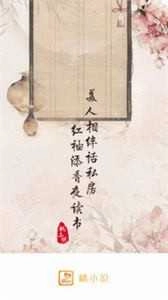 美人相伴话私房
红袖添香夜读书